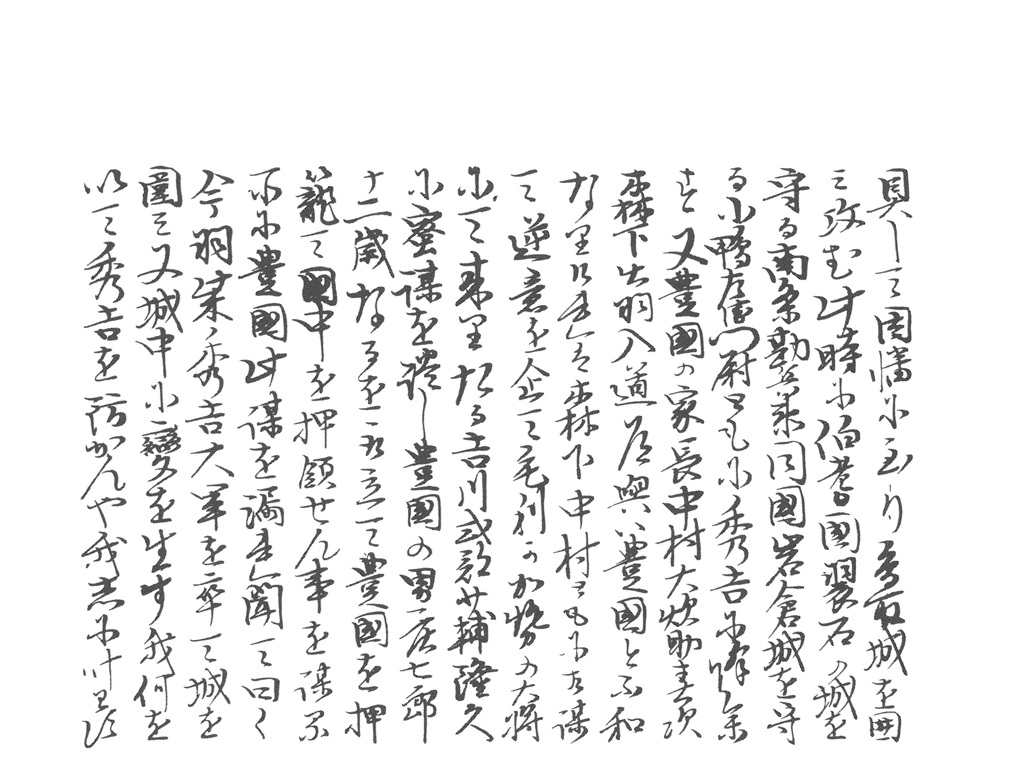 具して因幡に至り鳥取城を囲
み攻む此時に伯耆國羽衣石の城を
守る南条勘兵衛同國岩倉城を守
る小鴨左衛門尉ともに秀吉に降参
す又豊國の家長中村大炊助春次
森下出羽入道道與は豊國と不和
なり故に森下中村ともに謀
て逆意を企て毛利の加勢の大将
にて来りたる吉川式部少輔隆久
に蜜謀を遣し豊國の男庄七郎
十二歳なるを取立て豊國を押
籠て國中を押領せん事を謀る
所に豊國此謀を漏れ聞て曰く
今羽柴秀吉大軍を率て城を
圍み又城中に變を生す我何を
以て秀吉を防かんや我志に叶